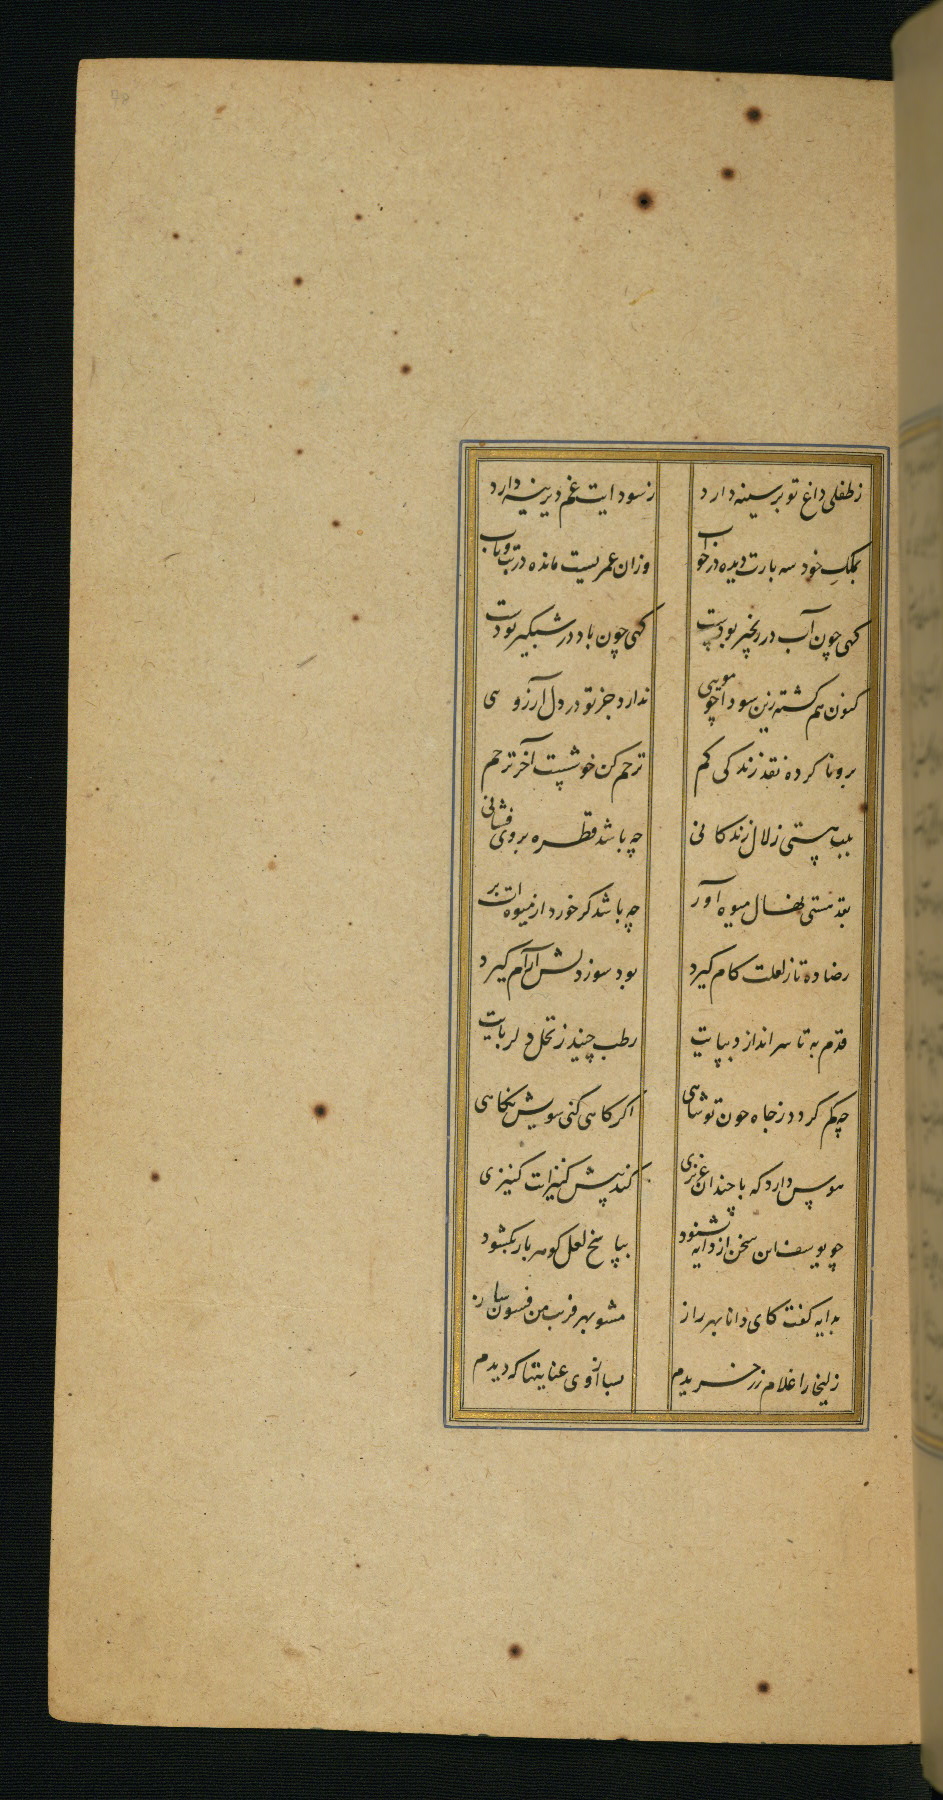 ز طفلی داغ تو بر سینه دارد ز سودایت غم دیرینه دارد
بملک خود سه بارت دیده در خواب وزان عمریست مانده در تب و تاب
کهی چون آب در زنجیر بودست کهی چون باد در شبکیر بودست
کنون هم کشته زین سودا چو مویی ندارد جز تو در دل آرزوسی
بروناکرده نقد زندکی کم ترحم کن خوشست آخر ترحم
بلب هستی زلال زندکانی چه باشد قطره بروی فشانی
بقد هستی نهال میوه آور چه باشد کر خورد از میوه ات بر
رضا ده تا ز لعلت کام کیرد بود سوز دلش آرام کیرد
قدم به تا سر اندازد بپایت رطب چیند ز نخل دلربایت
چه کم کردد ز جاه چون تو شاهی اکر کاهی کنی سویش نکاهی
هوس دارد که با چندان عزیزی کند پیش کنیزات کنیزی
چو یوسف این سخن از دایه بشنود بپاسخ لعل کوهر بار بکشود
بدایه کفت کای دانا بهر راز مشو بهر فریب من فسون ساز
زلیخا را غلام زر خریدم بسا از وی عنایتها که دیدم